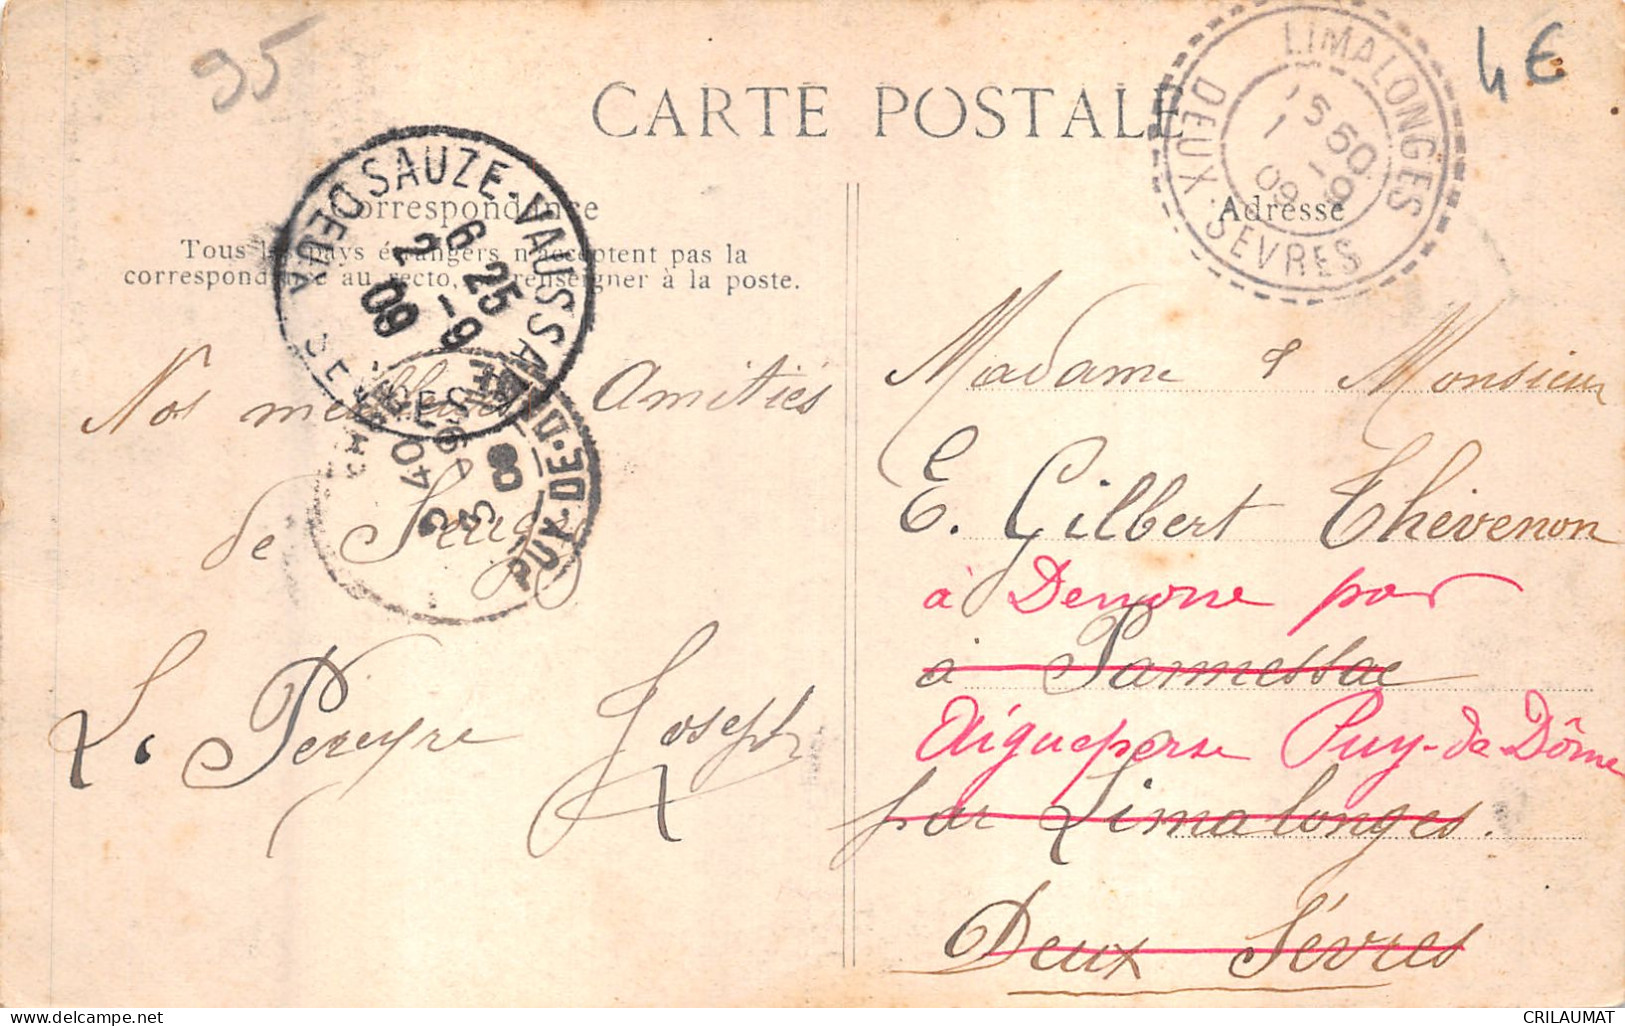 95
4 €
CARTE POSTALE
Correspondance
Tous les pays étrangers n'acceptent pas la
correspondance au recto, se renseigner à la poste.
SAUZE-VAUSSAIS
DEUX SEVRES
6 25
2 - 9
09
PUY-DE-DÔME
5 40
3 - 9
09
Nos meilleures Amitiés
de
L. Pereyre Joseph
LIMALONGES
DEUX-SEVRES
15 50
1 - 9
09
Adresse
Madame & Monsieur
E. Gilbert Thévenon
à Denone par
à Pannessac
Aigueperse Puy-de-Dôme
par Limalonges.
Deux Sévres
CRILAUMAT